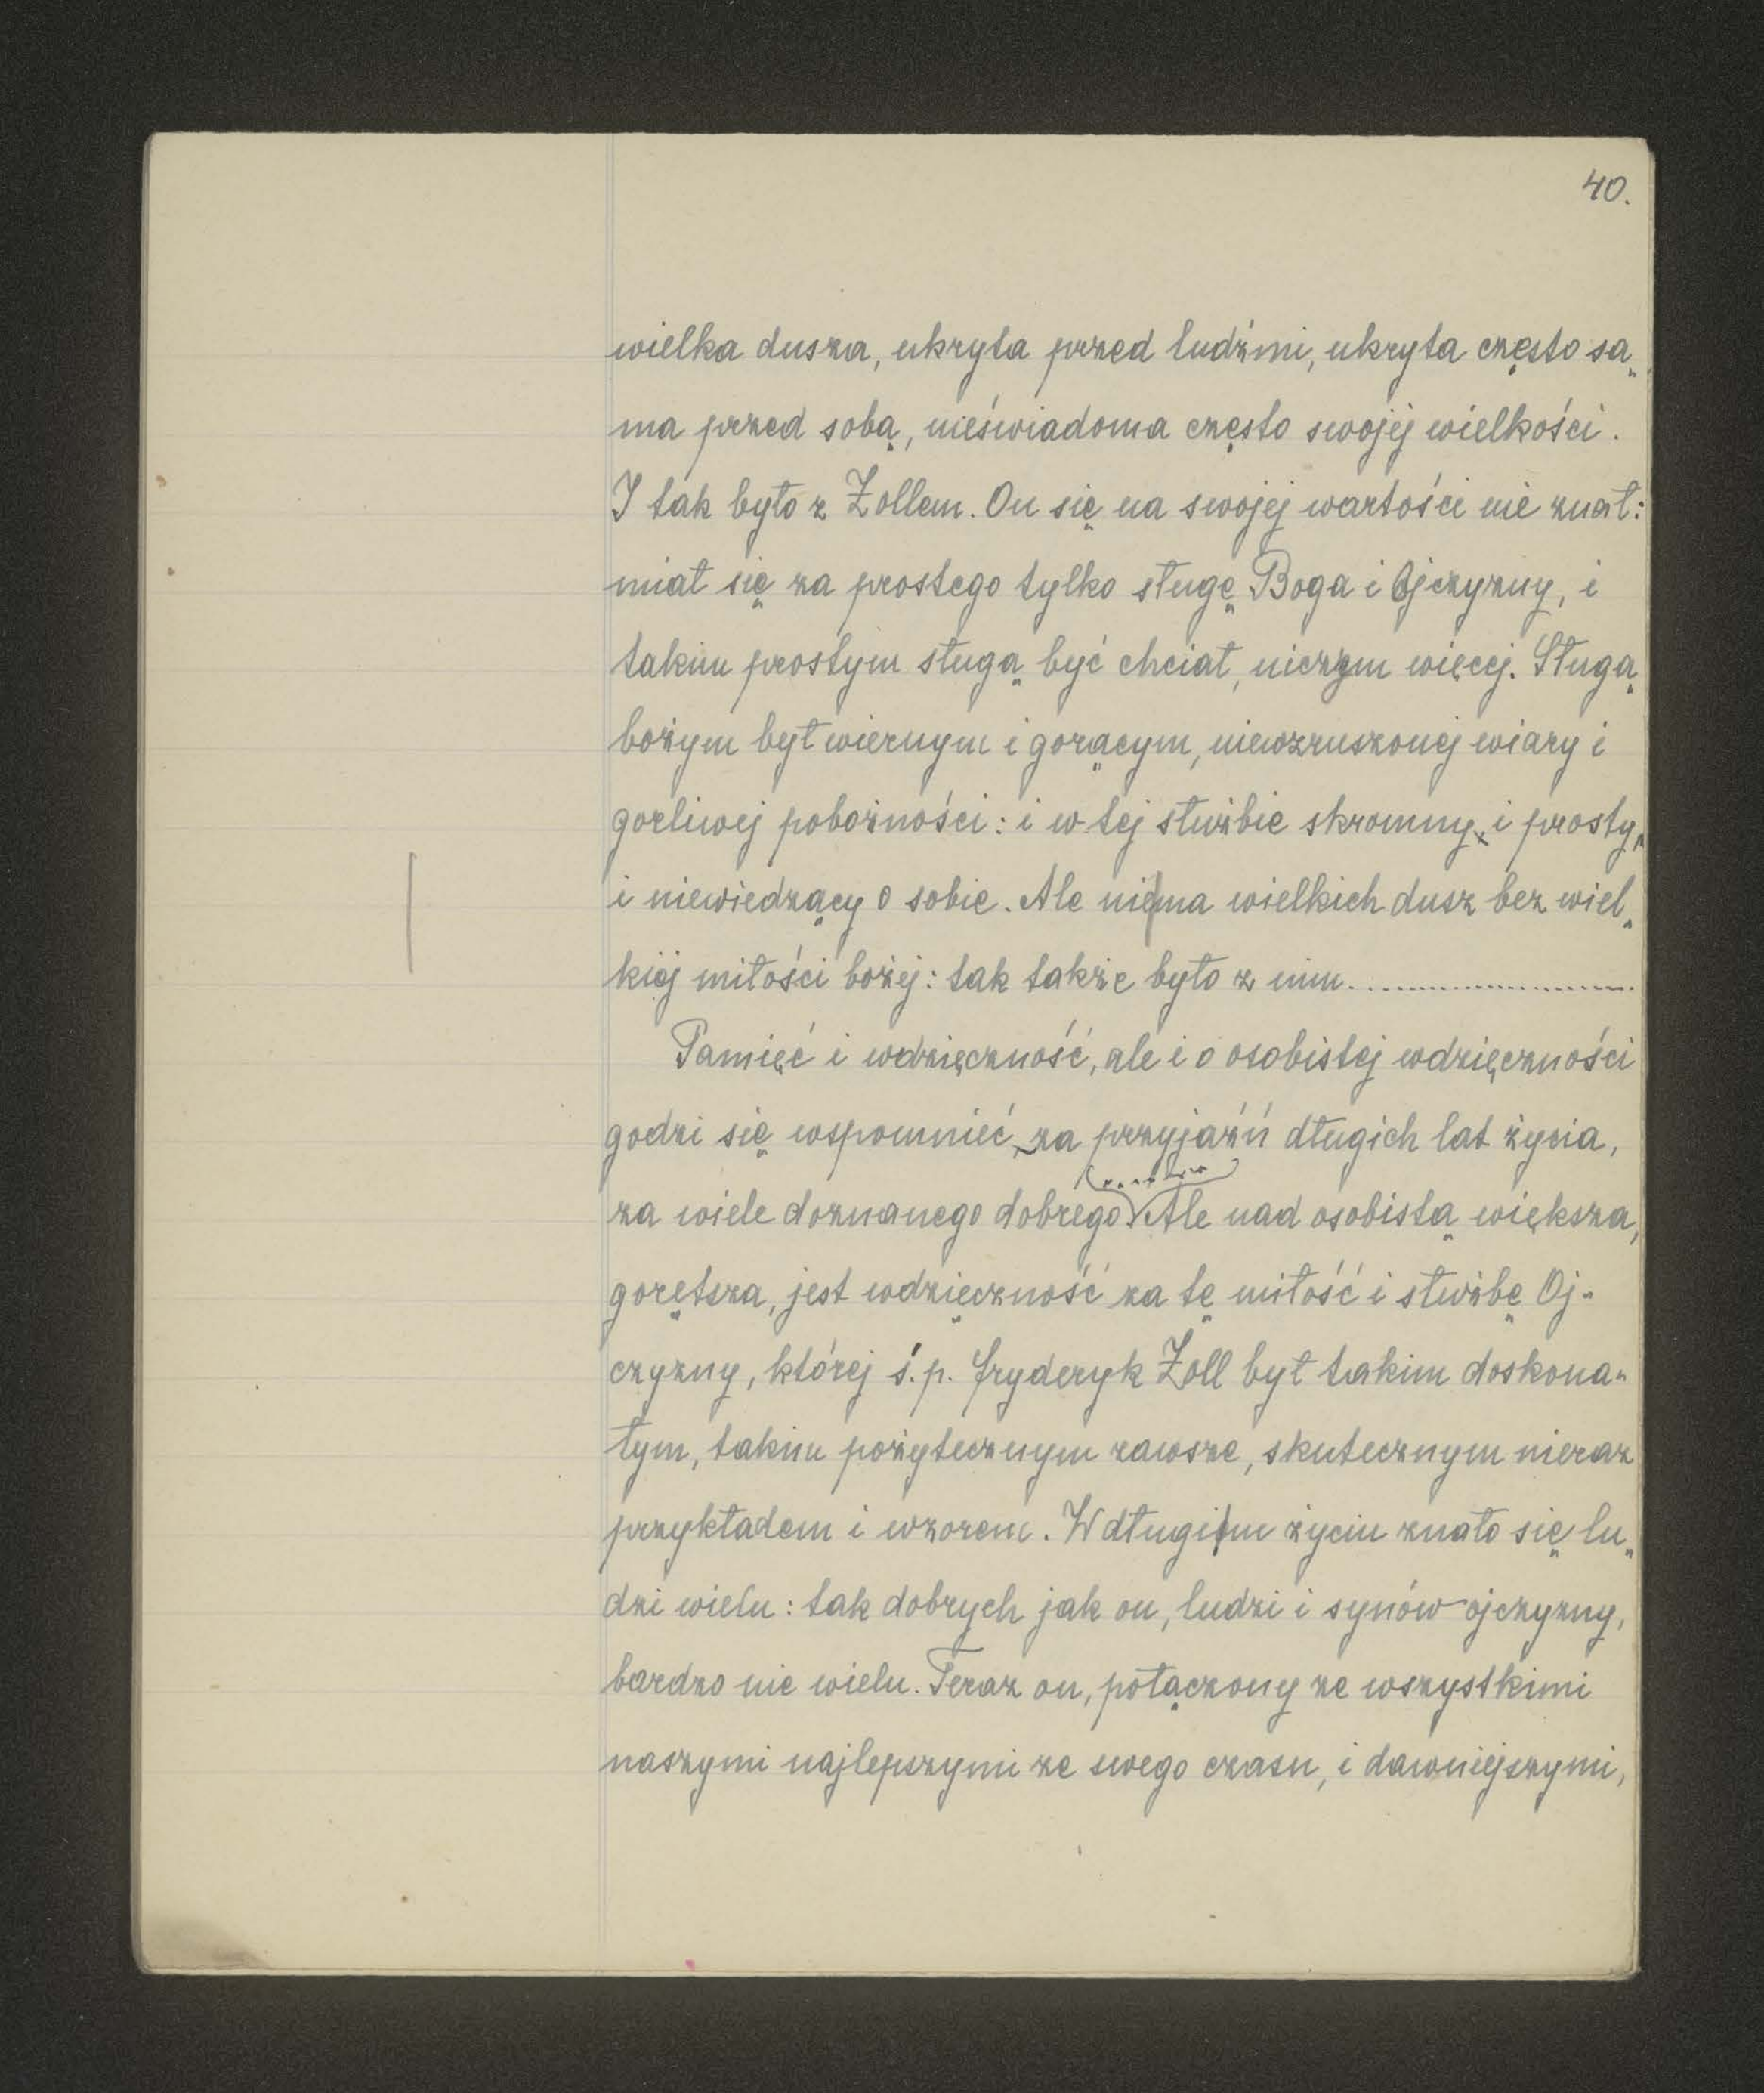 40.
wielka dusza, ukryta przed ludźmi, ukryta często sa„
ma przed sobą, nieświadoma często swojej wielkości.
I tak było z Zollem. On się na swojej wartości nie znał:
miał się za prostego tylko sługę Boga i Ojczyzny, i
takim prostym sługą być chciał, niczym więcej. Sługą
bożym był wiernym i gorącym, niewzruszonej wiary i
gorliwej pobożności: i w tej służbie skromny, i prosty,
i niewiedzący o sobie. Ale nie|ma wielkich dusz bez wiel„
kiej miłości bożej: tak także było z nim....................
Pamięć i wdzięczność, ale i o osobistej wdzięczności
godzi się wspomnieć, za przyjaźń długich lat życia,
za wiele doznanego dobrego. Ale nad osobistą większa,
gorętsza, jest wdzięczność za tę miłość i służbę Oj-
czyzny, której ś.p. Fryderyk Zoll był takim doskona„
łym, takim pożytecznym zawsze, skutecznym nieraz
przykładem i wzorem. W długim życiu znało się lu„
dzi wielu: tak dobrych jak on, ludzi i synów ojczyzny,
bardzo nie wielu. Teraz on, połączony ze wszystkimi
naszymi najlepszymi ze swego czasu, i dawniejszymi,